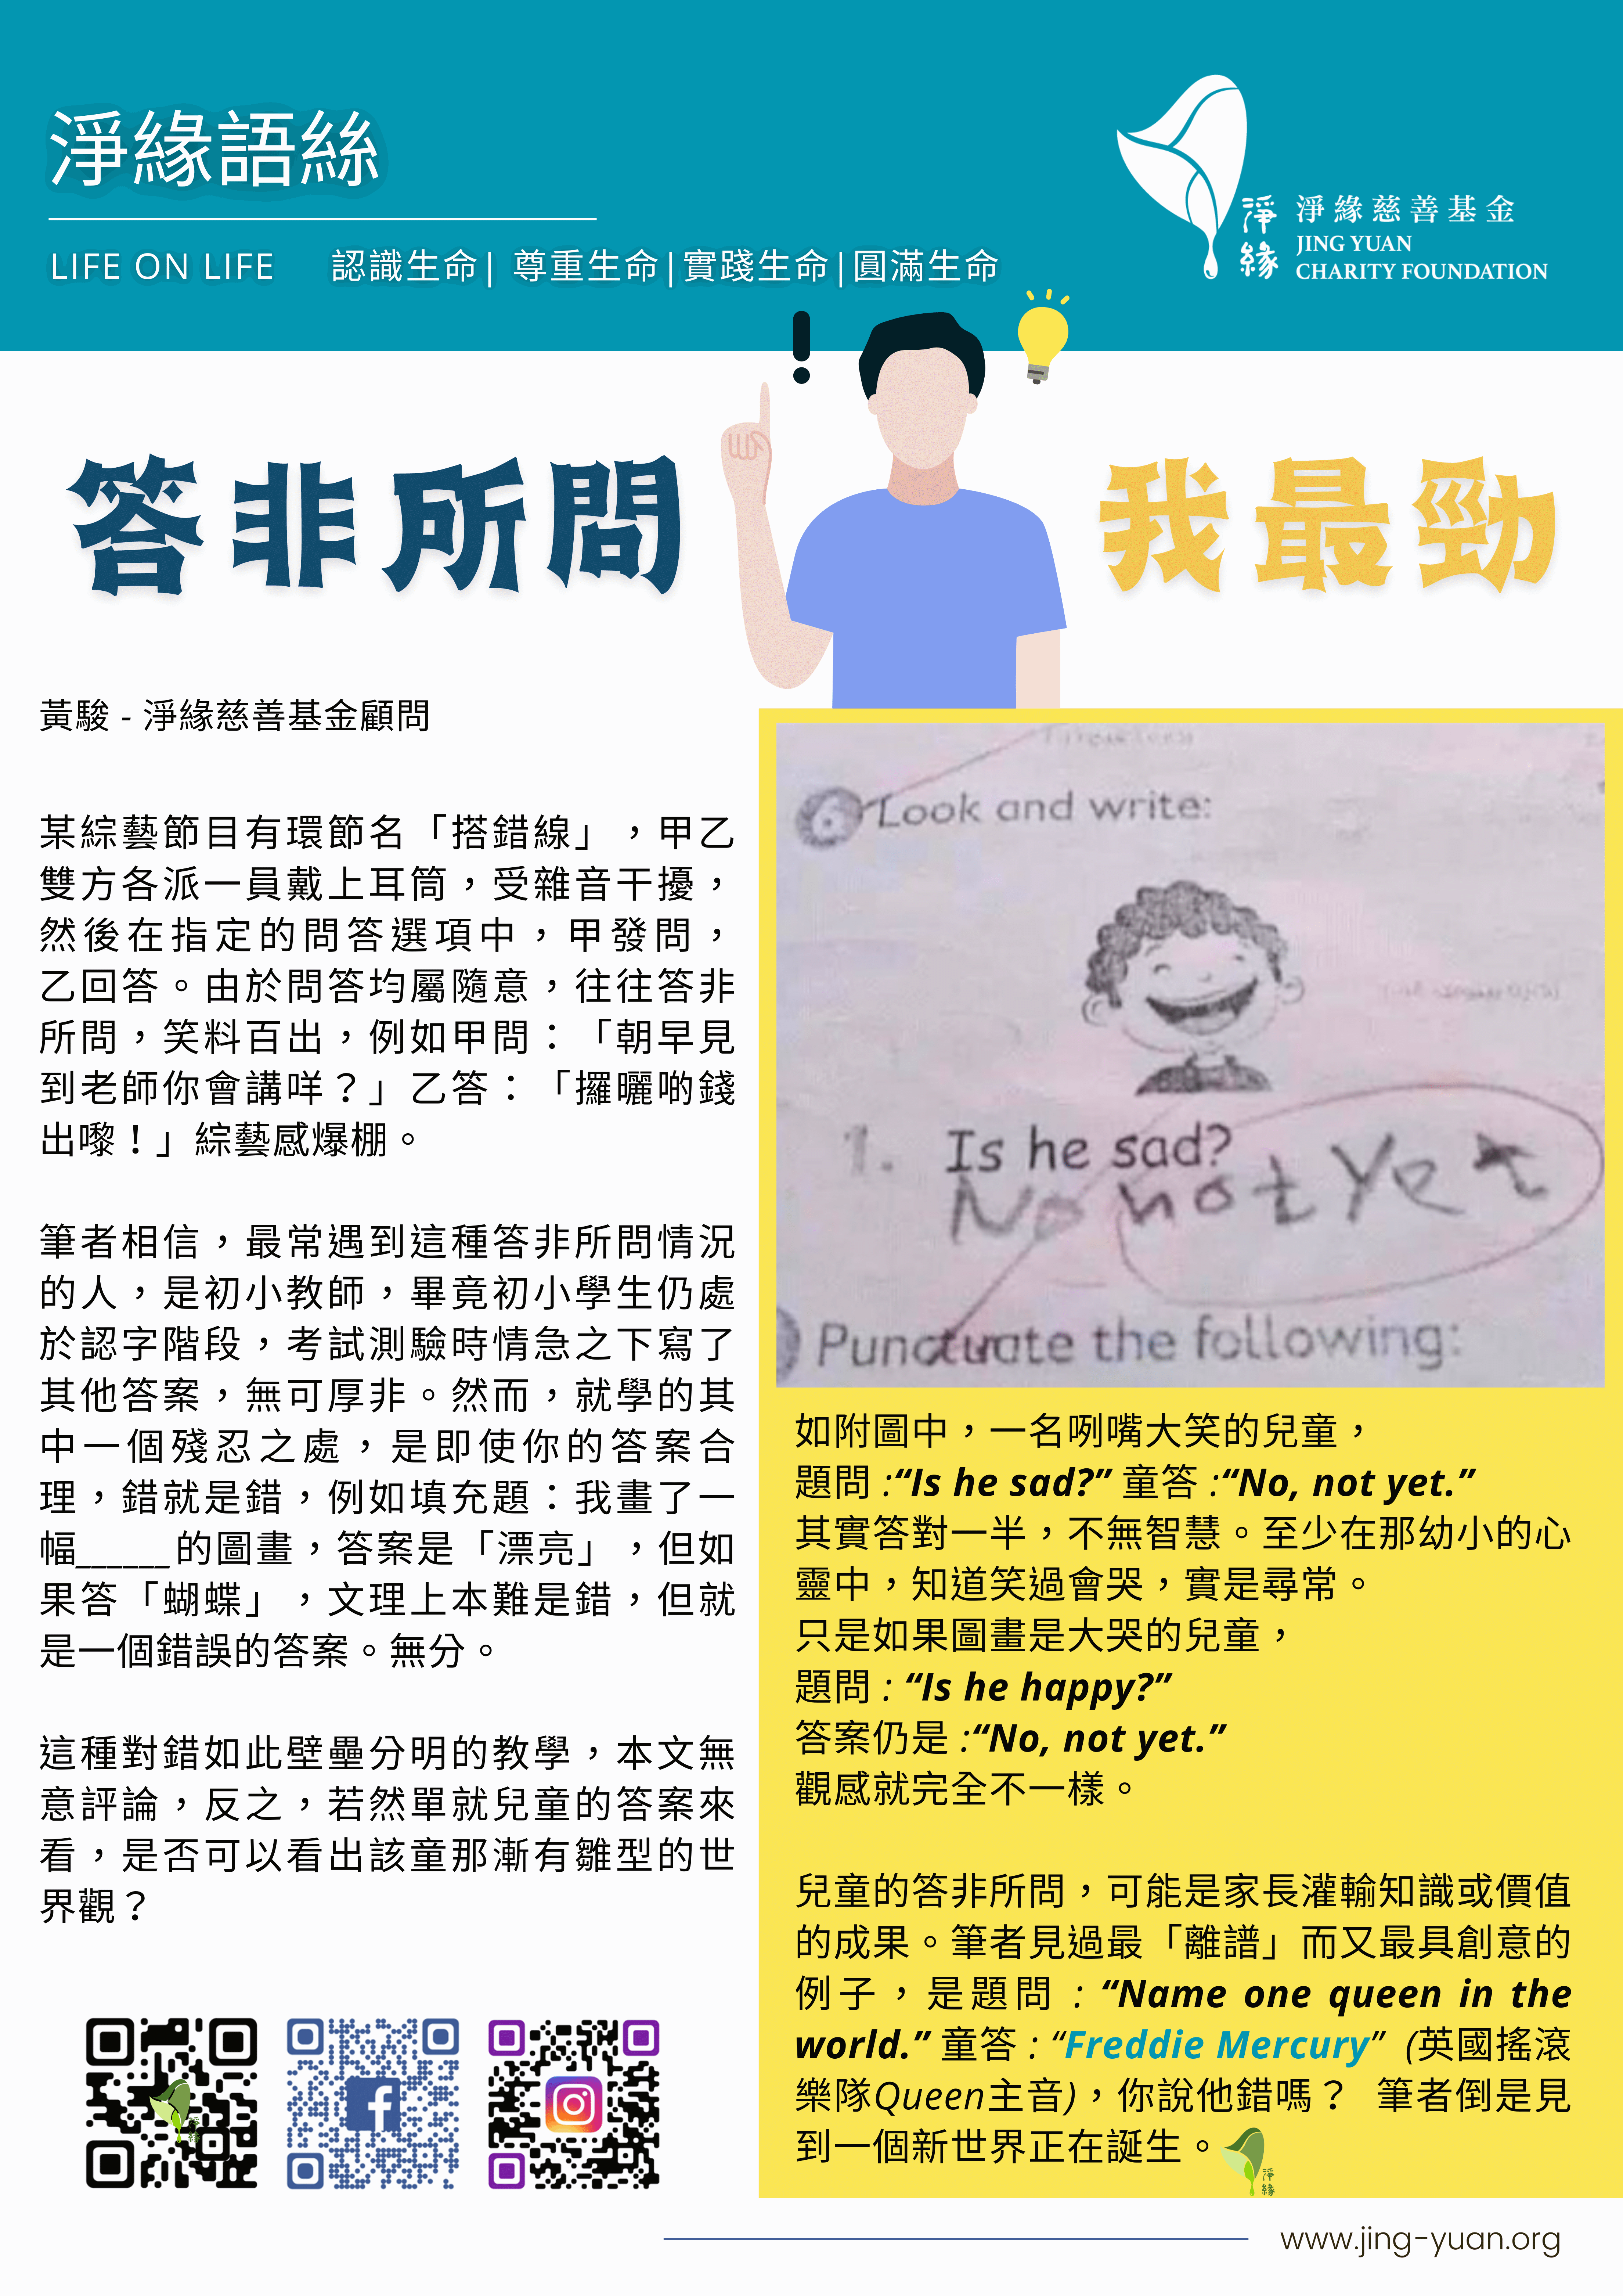 淨緣語絲
LIFE ON LIFE 認識生命| 尊重生命|實踐生命|圓滿生命
淨緣
淨緣慈善基金
JING YUAN
CHARITY FOUNDATION
!
答非所問
我最勁
黃駿 - 淨緣慈善基金顧問
某綜藝節目有環節名「搭錯線」，甲乙
雙方各派一員戴上耳筒，受雜音干擾，
然後在指定的問答選項中，甲發問，
乙回答。由於問答均屬隨意，往往答非
所問，笑料百出，例如甲問：「朝早見
到老師你會講咩？」乙答：「攞曬啲錢
出嚟！」綜藝感爆棚。
筆者相信，最常遇到這種答非所問情況
的人，是初小教師，畢竟初小學生仍處
於認字階段，考試測驗時情急之下寫了
其他答案，無可厚非。然而，就學的其
中一個殘忍之處，是即使你的答案合
理，錯就是錯，例如填充題：我畫了一
幅______的圖畫，答案是「漂亮」，但如
果答「蝴蝶」，文理上本難是錯，但就
是一個錯誤的答案。無分。
這種對錯如此壁壘分明的教學，本文無
意評論，反之，若然單就兒童的答案來
看，是否可以看出該童那漸有雛型的世
界觀？
6 Look and write:
1. Is he sad?
No not Yet
Punctuate the following:
如附圖中，一名咧嘴大笑的兒童，
題問 :“Is he sad?” 童答 :“No, not yet.”
其實答對一半，不無智慧。至少在那幼小的心
靈中，知道笑過會哭，實是尋常。
只是如果圖畫是大哭的兒童，
題問 : “Is he happy?”
答案仍是 :“No, not yet.”
觀感就完全不一樣。
兒童的答非所問，可能是家長灌輸知識或價值
的成果。筆者見過最「離譜」而又最具創意的
例子，是題問 : “Name one queen in the
world.” 童答 : “Freddie Mercury” (英國搖滾
樂隊Queen主音)，你說他錯嗎？ 筆者倒是見
到一個新世界正在誕生。
淨緣
www.jing-yuan.org